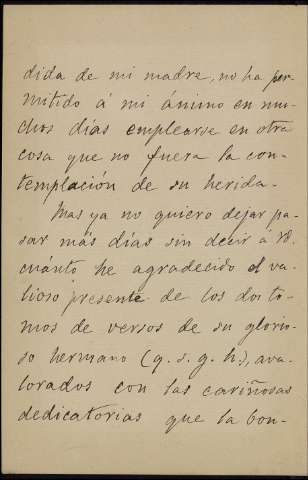 dida de mi madre, no ha per
mitido á mi ánimo en mu-
chos días emplearse en otra
cosa que no fuera la con-
templación de su herida.
Mas ya no quiero dejar pa-
sar más días sin decir á V.
cuánto he agradecido el va-
lioso presente de los dos to-
mos de versos de su glorio-
so hermano (q. s. g. h.), ava-
lorados con las cariñosas
dedicatorias que la bon-